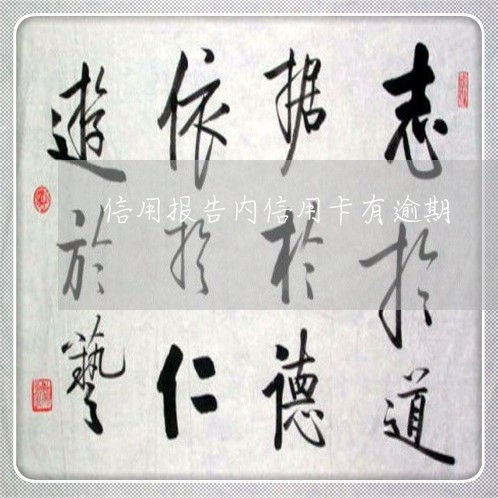 志於道
据於德
依於仁
遊於藝
信用报告内信用卡有逾期